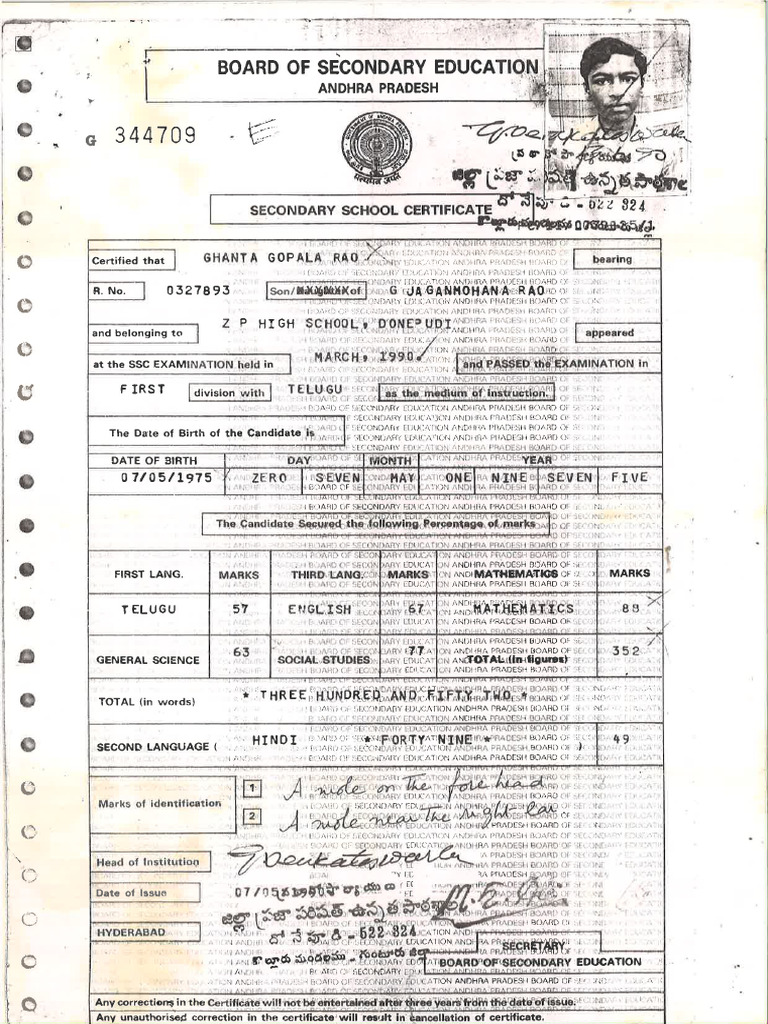 BOARD OF SECONDARY EDUCATION
ANDHRA PRADESH
G 344709
E
SECONDARY SCHOOL CERTIFICATE
జిల్లా ప్రజా పరిషత్ ఉన్నత పాఠశాల
దోనేపూడి - 522 324
Certified that GHANTA GOPALA RAO bearing
R. No. 0327893 Son/ of G JAGANMOHANA RAO
and belonging to Z P HIGH SCHOOL, DONEPUDI appeared
at the SSC EXAMINATION held in MARCH, 1990. and PASSED the EXAMINATION in
FIRST division with TELUGU as the medium of instruction.
The Date of Birth of the Candidate is
DATE OF BIRTH DAY MONTH YEAR
07/05/1975 ZERO SEVEN MAY ONE NINE SEVEN FIVE
The Candidate Secured the following Percentage of marks
FIRST LANG. MARKS THIRD LANG. MARKS MATHEMATICS MARKS
TELUGU 57 ENGLISH 67 MATHEMATICS 88
GENERAL SCIENCE 63 SOCIAL STUDIES 77 TOTAL (in figures) 352
TOTAL (in words) * THREE HUNDRED AND FIFTY TWO *
SECOND LANGUAGE ( HINDI * FORTY NINE * ) 49
Marks of identification 1 A mole on the fore head
2 A mole near the right ear
Head of Institution
Date of Issue 07/05/1990
జిల్లా ప్రజా పరిషత్ ఉన్నత పాఠశాల
HYDERABAD దోనేపూడి - 522 324
కొల్లూరు మండలము - గుంటూరు జిల్లా
SECRETARY
BOARD OF SECONDARY EDUCATION
Any corrections in the Certificate will not be entertained after three years from the date of issue.
Any unauthorised correction in the certificate will result in cancellation of certificate.